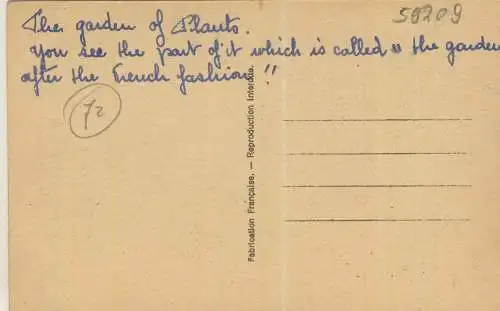 The garden of Plants.
You see the part of it which is called " the garden
after the French fashion "
59209
72
Fabrication Française. — Reproduction Interdite.